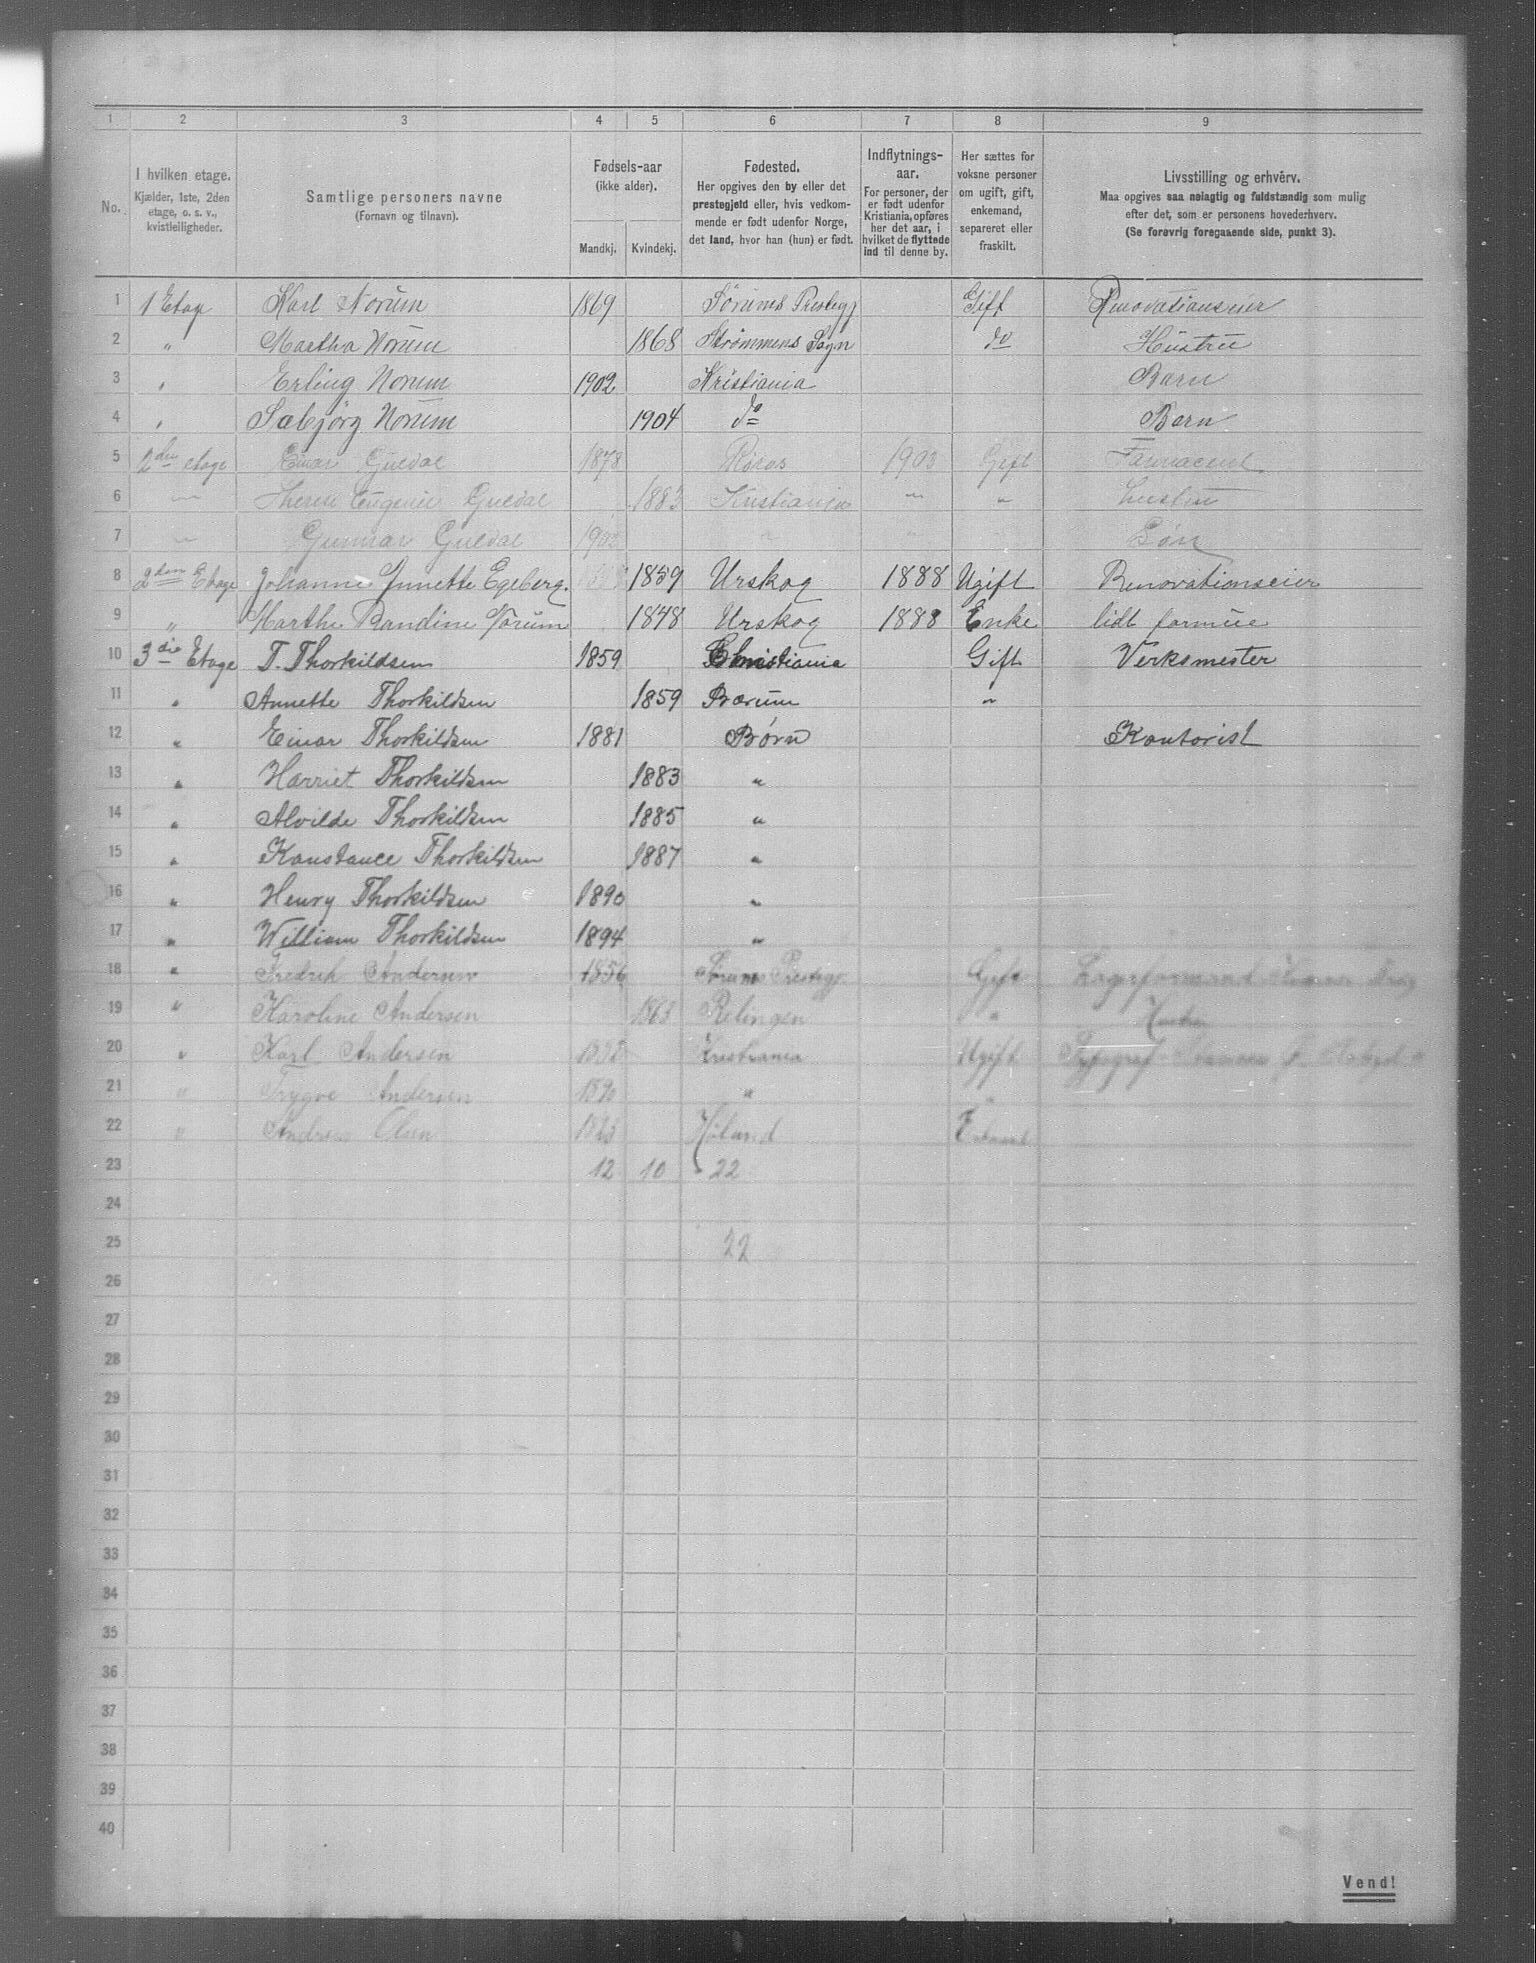 1 2 3 4 5 6 7 8 9
No.
I hvilken etage.
Kjælder, 1ste, 2den
etage, o. s. v.,
kvistleiligheder.
Samtlige personers navne
(Fornavn og tilnavn).
Fødsels-aar
(ikke alder).
Mandkj. Kvindekj.
Fødested.
Her opgives den by eller det
prestegjeld eller, hvis vedkom-
mende er født udenfor Norge,
det land, hvor han (hun) er født.
Indflytnings-
aar.
For personer, der
er født udenfor
Kristiania, opføres
her det aar, i
hvilket de flyttede
ind til denne by.
Her sættes for
voksne personer
om ugift, gift,
enkemand,
separeret eller
fraskilt.
Livsstilling og erhverv.
Maa opgives saa nøiagtig og fuldstændig som mulig
efter det, som er personens hovederhverv.
(Se forøvrig foregaaende side, punkt 3).
1 1 Etage Karl Norum 1869 Sørums Prestegj Gift Renovationseier
2 " Martha Norum 1868 Strømmens Sogn do Hustru
3 " Erling Norum 1902 Kristiania Barn
4 " Norum 1904 do Barn
5 2den etage Einar Guldal 1878 Røros 1903 Gift Farmaceut
6 " Therese Eugenie Guldal 1883 Kristiania " " hustru
7 " Gunnar Guldal " Søn
8 2den Etage Johanne Annette Egeberg. 1859 Urskog 1888 Ugift Renovationseier
9 " Marthe Randine Norum 1848 Urskog 1888 Enke lidt formue
10 3die Etage T. Thorkildsen 1859 Christiania Gift Verksmester
11 " Annette Thorkildsen 1859 Bærum "
12 " Einar Thorkildsen 1881 Børn Kontorist
13 " Harriet Thorkildsen 1883 "
14 " Alvilde Thorkildsen 1885 "
15 " Konstance Thorkildsen 1887 "
16 " Henry Thorkildsen 1890 "
17 " William Thorkildsen 1894 "
18 " Fredrik Andersen 1856 Sørums Prestegj. Gift Lagerformand
19 " Karoline Andersen 1863 Relingen " Hustru
20 " Karl Andersen Kristiania Ugift Typograf
21 " Trygve Andersen 1890 "
22 " Andreas Olsen Høland
23 12 10 22
24
25 22
26
27
28
29
30
31
32
33
34
35
36
37
38
39
40
Vend!